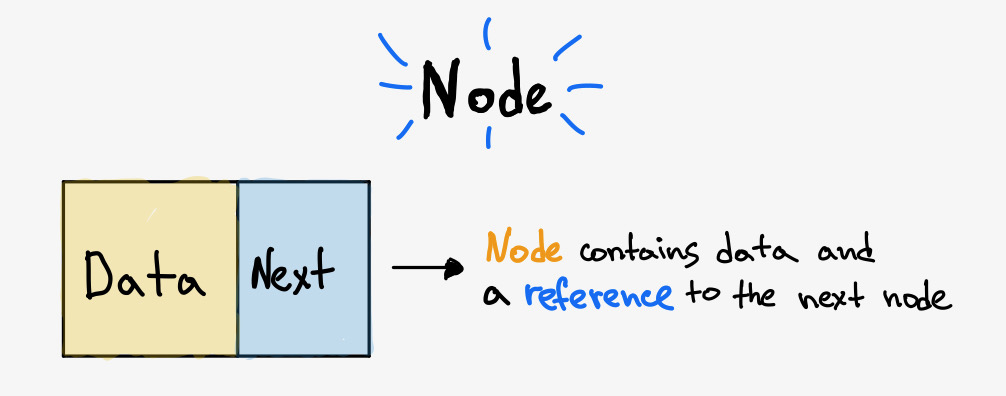 Node
Data Next
Node contains data and
a reference to the next node